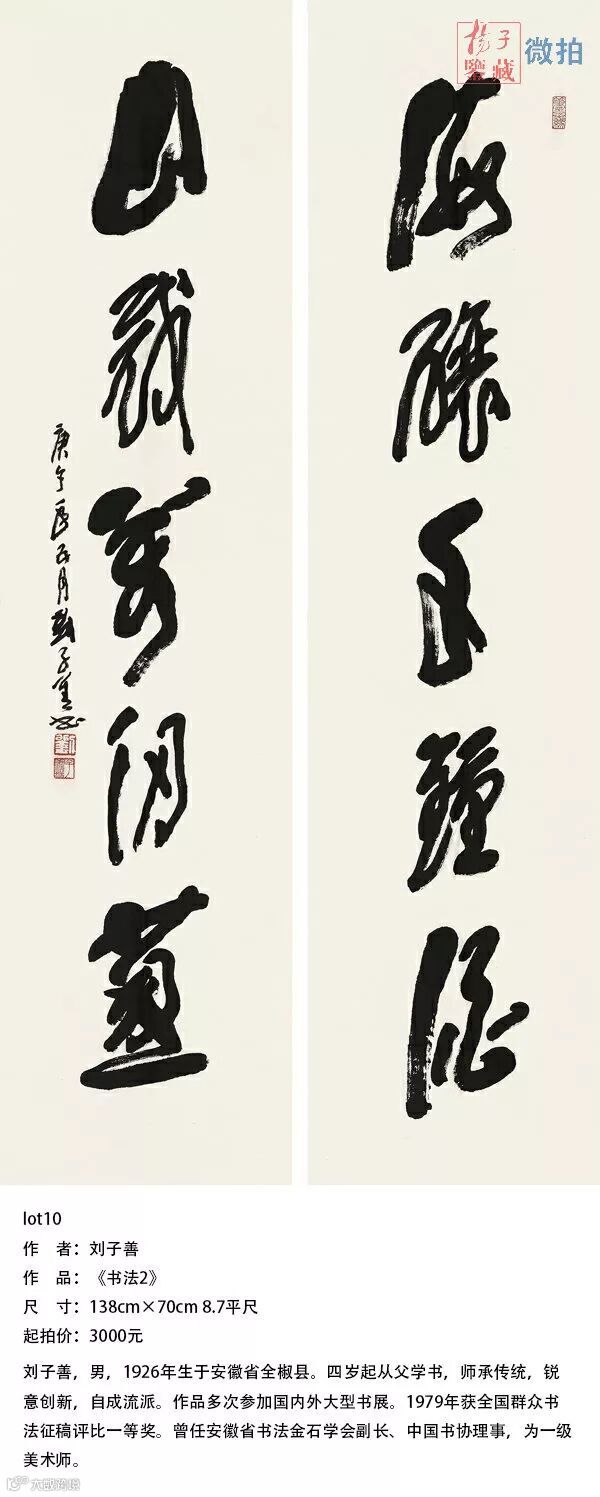 楊子
鑒藏
微拍
海釀千鍾酒
山栽萬仞蔥
庚午夏五月劉子善书
lot10
作 者：刘子善
作 品：《书法2》
尺 寸：138cm×70cm 8.7平尺
起拍价：3000元
刘子善，男，1926年生于安徽省全椒县。四岁起从父学书，师承传统，锐
意创新，自成流派。作品多次参加国内外大型书展。1979年获全国群众书
法征稿评比一等奖。曾任安徽省书法金石学会副长、中国书协理事，为一级
美术师。
大数跨境